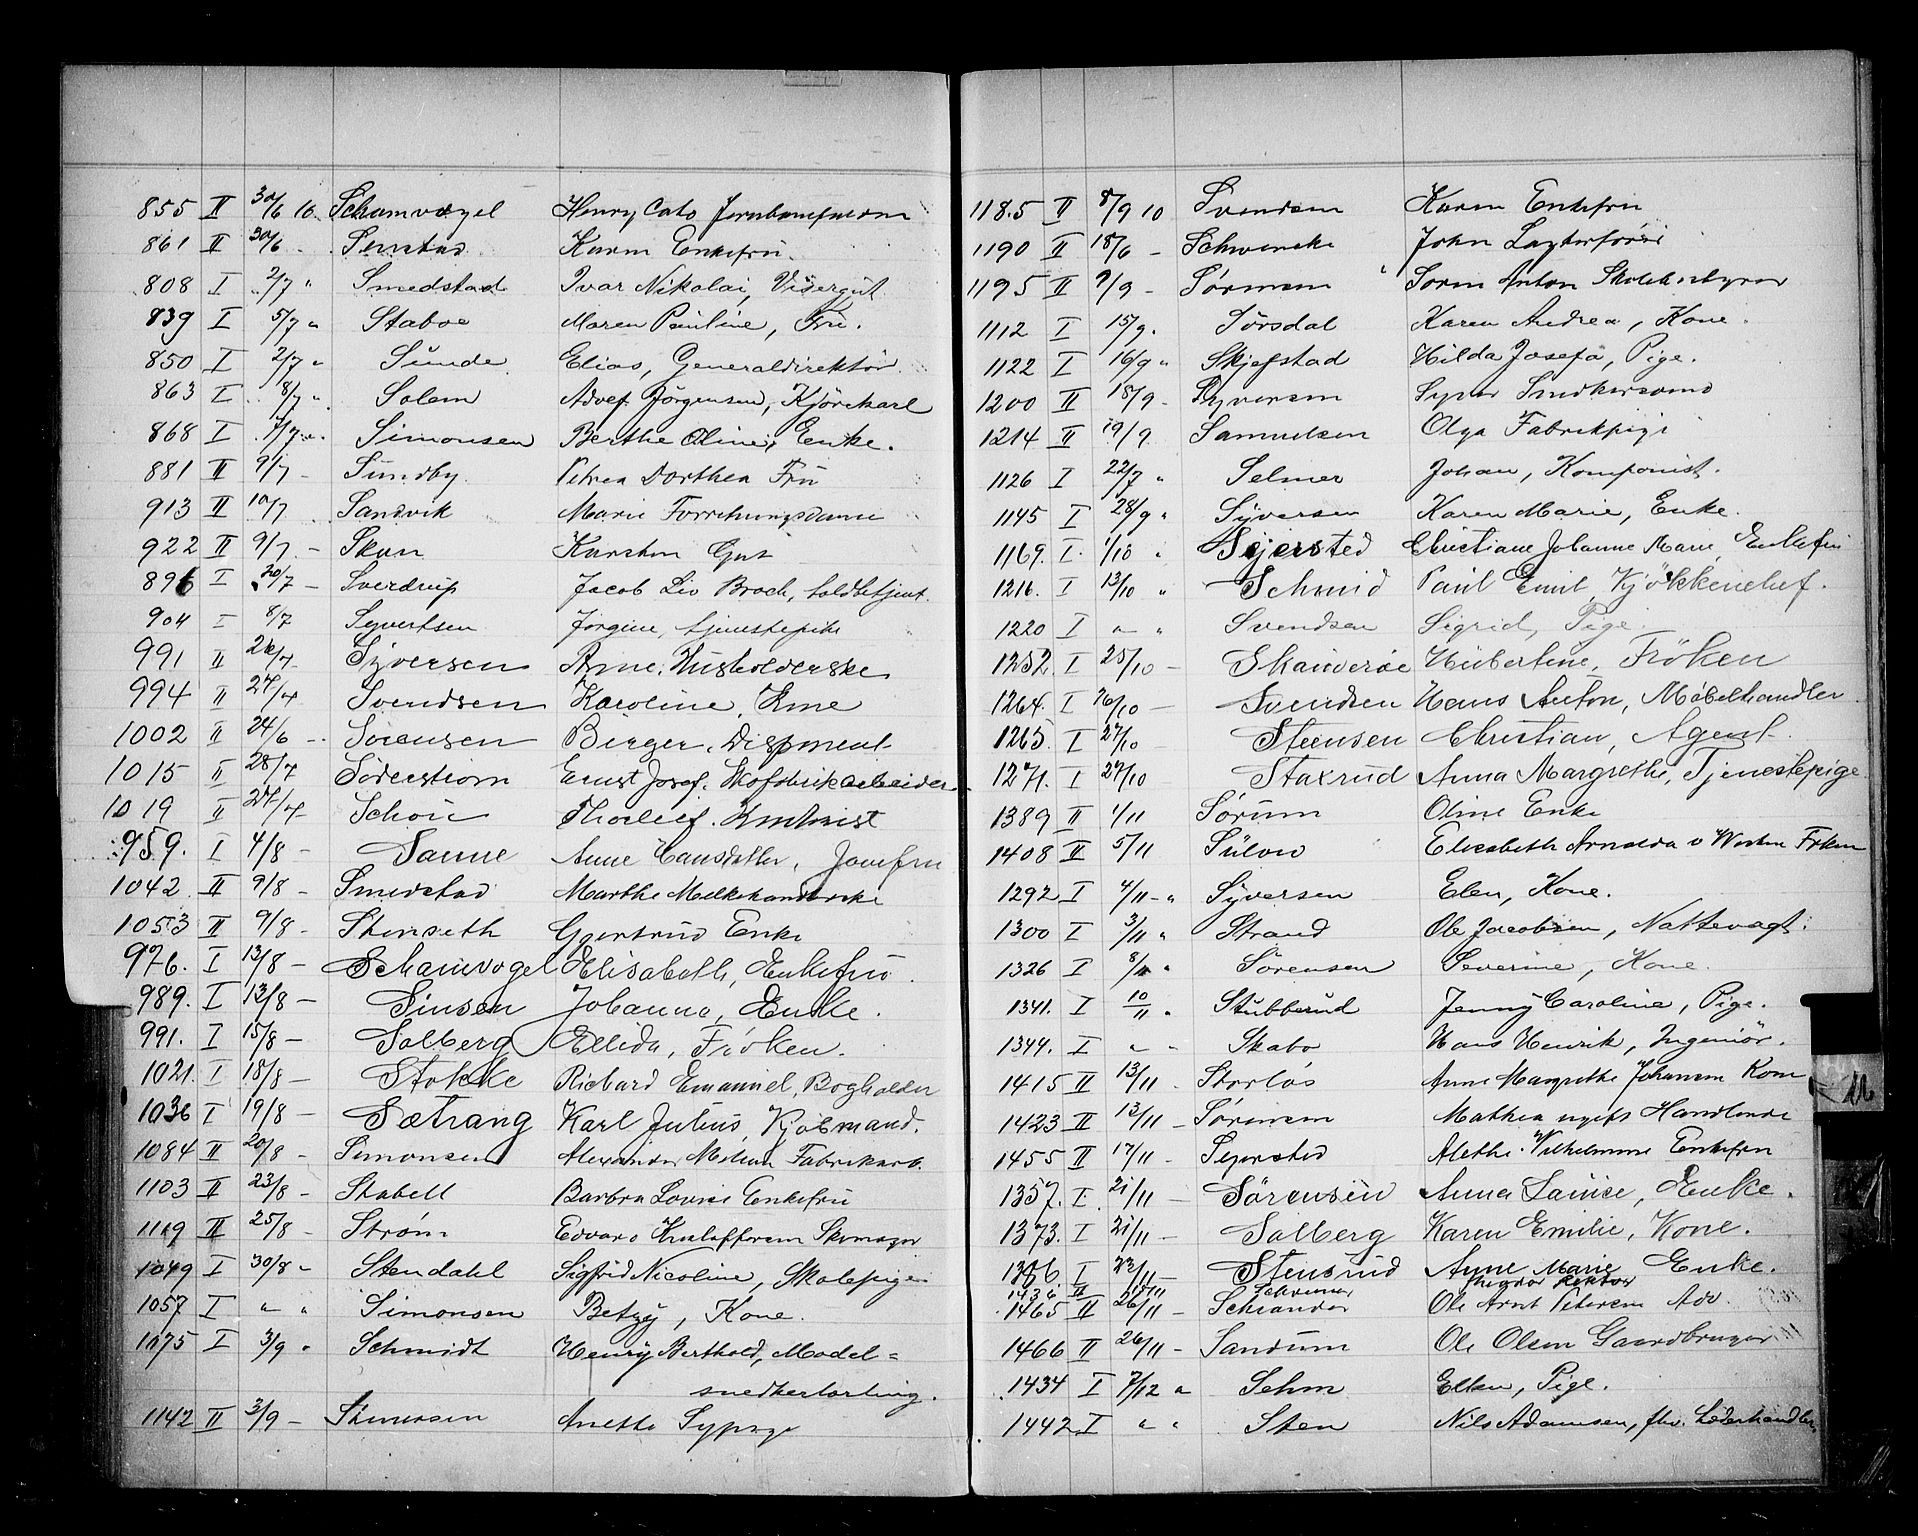 855 II 30/6 10. Schamvogel Henry Cato
861 II 30/6 - Senstad Karen Enkefru.
808 I 2/7 " Smedstad Ivar Nikolai, Visergut
839 I 5/7 " Staboe Maren Pauline, Fru.
850 I 2/7 " Sunde Elias, Generaldirektør
863 I 8/7 " Solem Adolf Jörgensen, Kjörekarl
868 I 7/7 " Simonsen Berthe Oline, Enke.
881 II 9/7 - Sundby Petrea Dorthea Fru
913 II 10/7 Sandvik Marie Forretningsdame
922 II 9/7 - Skau Karsten Gut
896 I 20/7 - Sverdrup Jacob Liv Broch, toldbetjent.
904 I 8/7 Syvertsen Jörgine, tjenestepike
991 II 26/7 Syversen Arne. Husholderske
994 II 27/7 Svendsen Karoline, Kone
1002 II 24/6 - Sørensen Birger. Disponent
1015 II 28/7 Søderstrøm Ernst Josef. Skofabrikarbeider
1019 II 27/7 Schou Thorleif.
959. I 4/8 - Sanne Anne Hansdatter, Jomfru
1042 II 9/8 - Smedstad Marthe Melkehandlerske
1053 II 9/8 - Stenseth Gjertrud Enke
976. I 13/8 - Schamvogel Elisabeth, Enkefru.
989. I 13/8 - Sinsen Johanne, Enke.
991. I 15/8 - Solberg Ellida, Fröken.
1021 I 18/8 - Stokke Richard Emanuel, Bogholder
1036 I 19/8 - Sætrang Karl Julius, Kjöbmand.
1084 II 20/8 - Simonsen Alexander Fabrikarb.
1103 II 23/8 - Stabell Barbra Lovise Enkefru
1119 II 25/8 - Strøm Edvard Kristoffersen Skomager
1049 I 30/8 " Stendahl Sigfrid Nicoline, Skolepige
1057 I " " Simonsen Betzy, Kone.
1075 I 3/9 " Schmidt Henry Berthold, Model=
snedkerlærling.
1142 II 3/9 - Simensen Anette Sypige
1185 II 8/9 10 Svendsen Karen Enkefru
1190 II 18/6 - Schwenske John
1195 II 9/9 - Sørensen Søren Anton Skolebestyrer
1112 I 15/9. Sørsdal Karen Andrea, Kone.
1122 I 16/9 " Skjefstad Hilda Josefa, Pige.
1200 II 18/9 - Syversen Syver Snedkersvend
1214 II 19/9. Samuelsen Olga Fabrikpige
1126 I 22/7 " Selmer Johan, Komponist.
1145 I 28/9 " Syversen Karen Marie, Enke.
1169. I. 1/10 " Sejersted Christiane Johanne Marie, Enkefru
1216. I 13/10 " Schmid Paul Emil, Kjökkenchef.
1220 I " " Svendsen Sigrid, Pige.
1252. I 25/10 - Skanveröe Hubertine, Fröken
1264. I 26/10 - Svendsen Hans Anton, Möbelhandler
1265. I 27/10 Steensen Christian, Agent.
1271. I 27/10 Staxrud Anna Margrethe, Tjenestepige
1389 II 1/11 Sørum Oline Enke
1408 II 5/11 Sülow Elisabeth Arnolda v Westen Frken
1292 I 4/11 - " Syversen Elen, Kone.
1300 I 3/11 " Strand Ole Jacobsen, Nattevagt.
1326 I 8/11 " Sørensen Severine, Kone.
1341. I 10/11 " Stubberud Jenny Caroline, Pige.
1344. I " " Skabo Hans Henrik, Ingeniör.
1415 II 13/11 - Storløs Anne Margrethe Johansen Kone
1423 II 13/11 - Sørensen Mathea ugift Handlende
1455 II 17/11 - Sejersted Alethe Vilhelmine Enkefru
1357. I. 21/11 - Sørensen Anna Louise, Enke.
1373. I 21/11 - Solberg Karen Emilie, Kone.
1376. I 23/11 - Stensrud Anne Marie Enke.
1436 II 15/11 Schreiner Theodor Rektor
1465 II 26/11 - Schrander Ole Arnt Petersen Adv.
1466 II 26/11 - Sandum Ole Olsen Gaardbruger
1434 I 7/12 " Sehm Ellen, Pige.
1442 I " " Sten Nils Adamsen, fhv. Læderhandler.